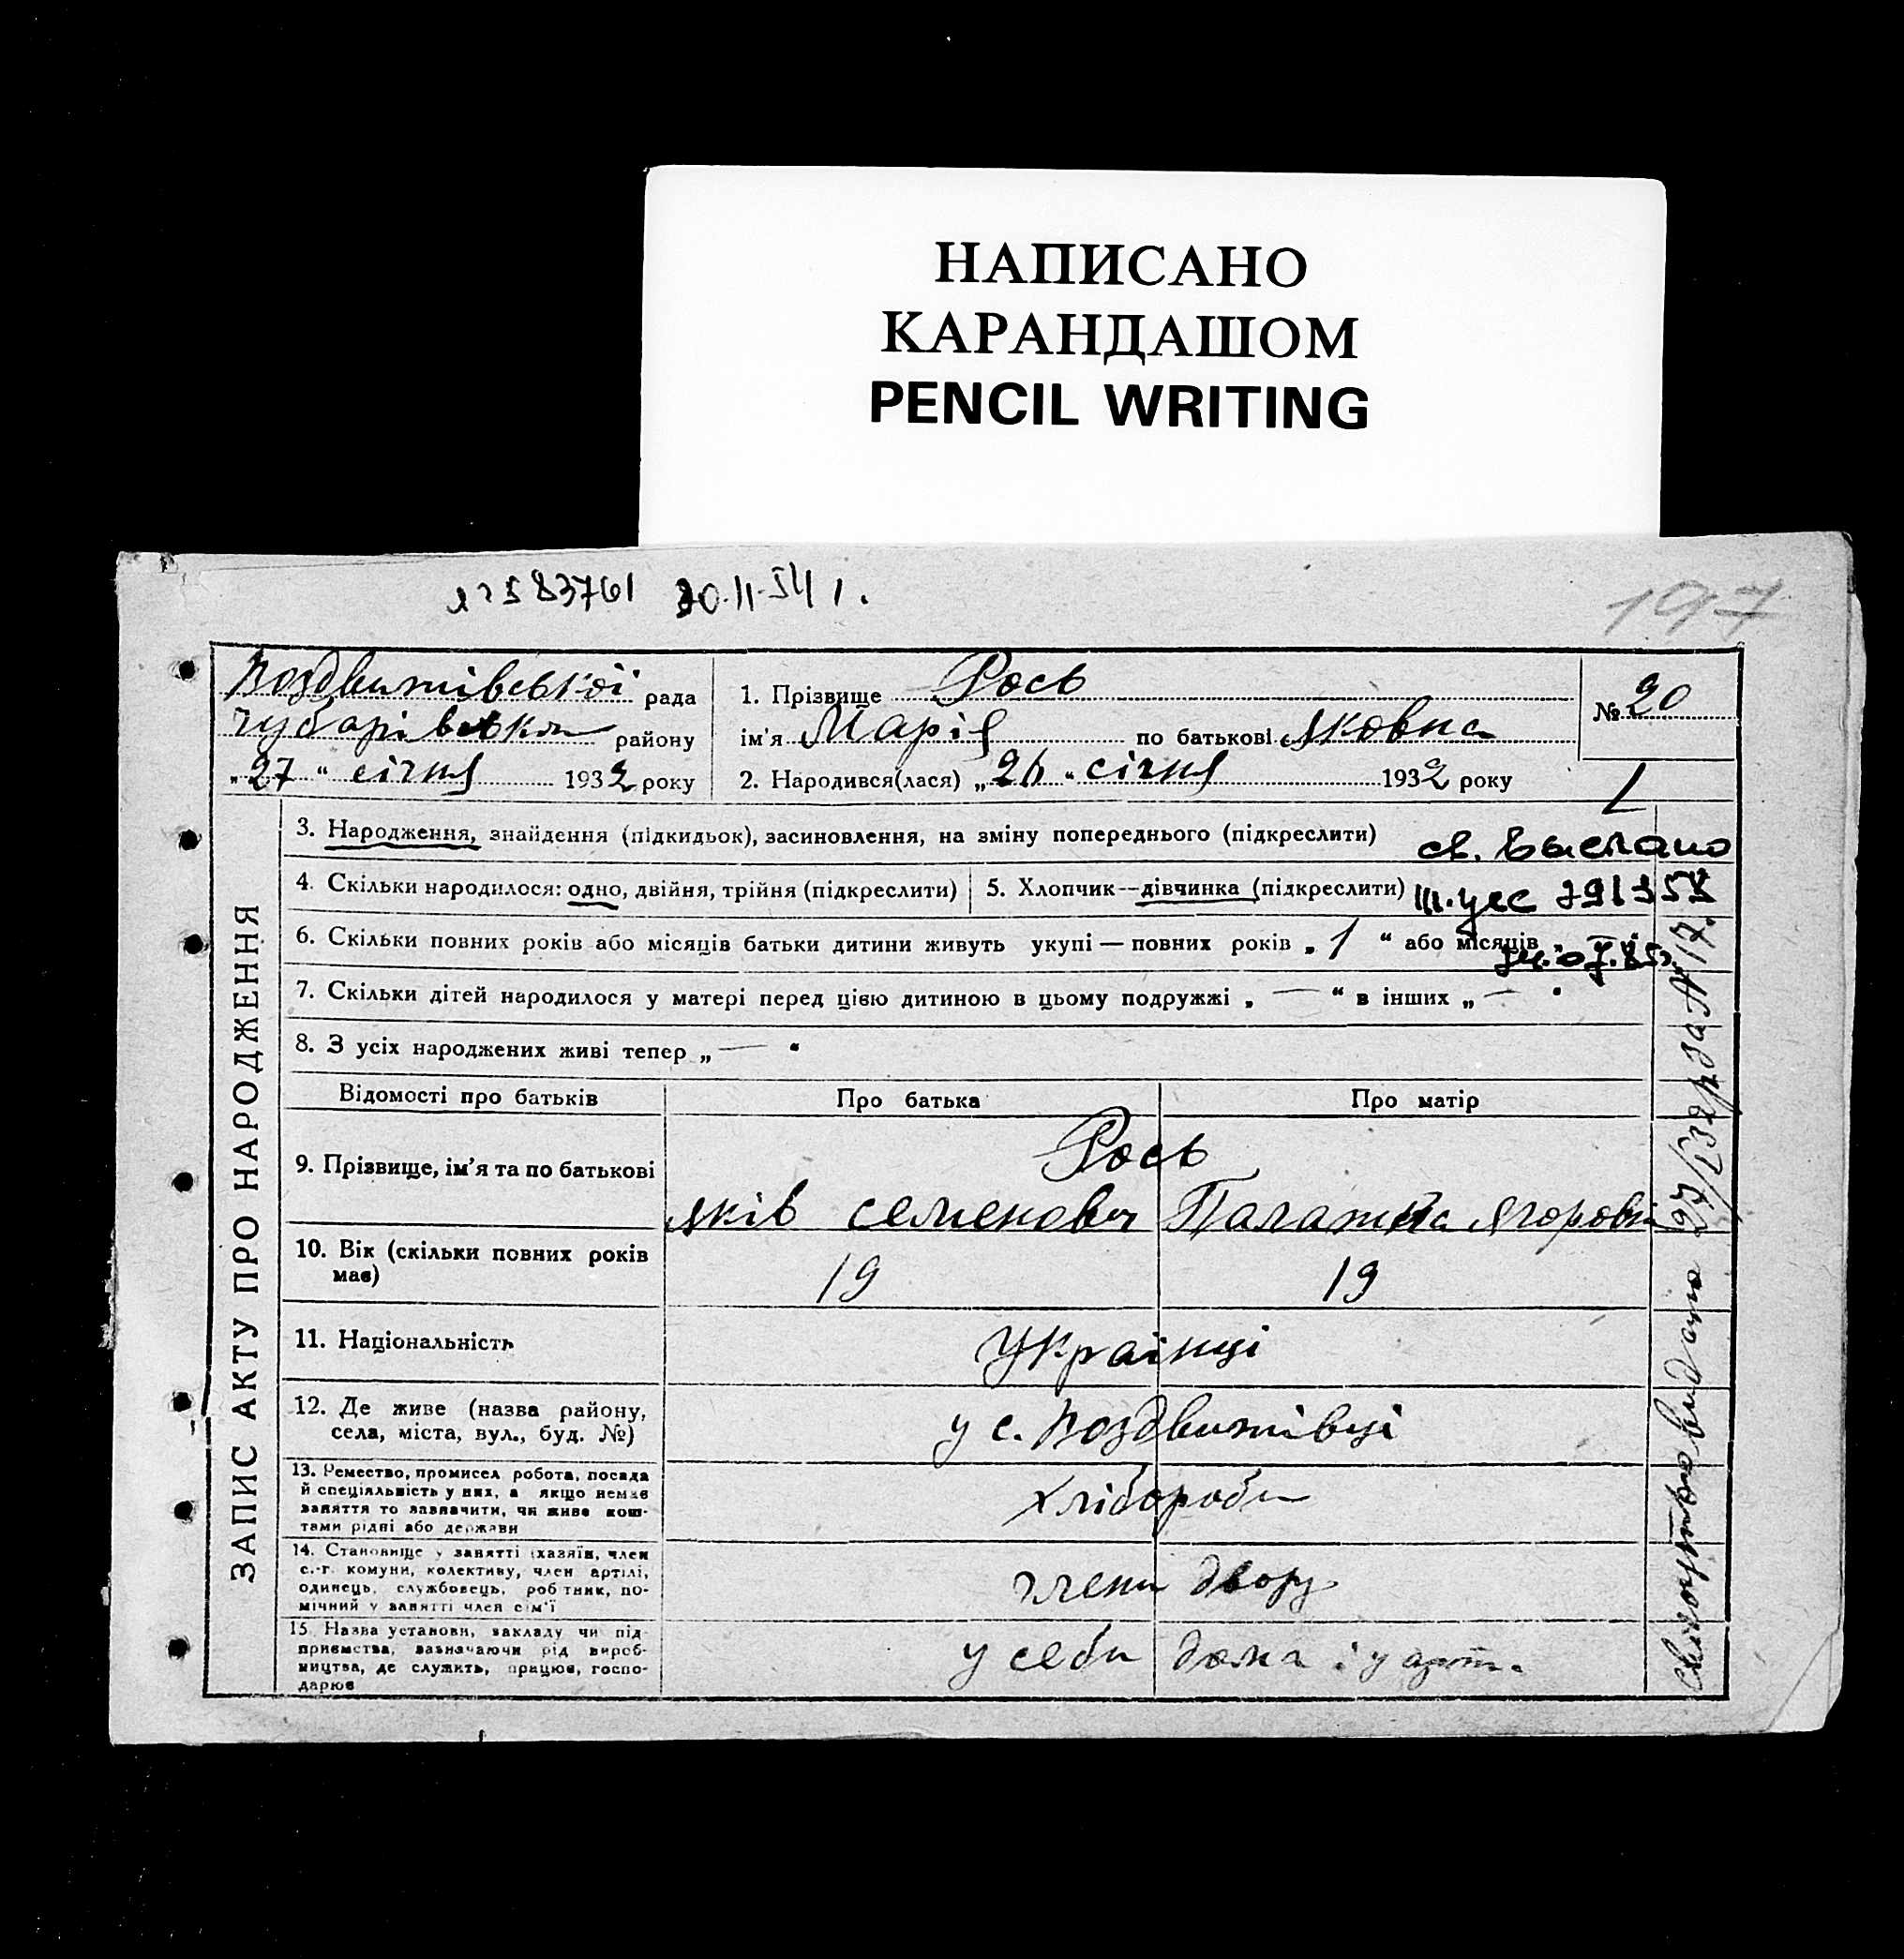 НАПИСАНО
КАРАНДАШОМ
PENCIL WRITING
583761 30.11.54
197
Воздвижівської рада
Чубарівськ району
„27“ січня 1932 року
1. Прізвище Рось
ім'я Марія по батькові Яковна
2. Народився(лася) „26“ січня 1932 року
№ 20
ЗАПИС АКТУ ПРО НАРОДЖЕННЯ
3. Народження, знайдення (підкидьок), засиновлення, на зміну попереднього (підкреслити)
св. выслано
4. Скільки народилося: одно, двійня, трійня (підкреслити)
5. Хлопчик—дівчинка (підкреслити)
6. Скільки повних років або місяців батьки дитини живуть укупі — повних років „1“ або місяців „—
7. Скільки дітей народилося у матері перед цією дитиною в цьому подружжі „—“ в інших „—“
8. З усіх народжених живі тепер „—“
Відомості про батьків
Про батька
Про матір
9. Прізвище, ім'я та по батькові
Рось
Яків Семенович
Палажка Ягоровна
10. Вік (скільки повних років
має)
19
19
11. Національність
Українці
12. Де живе (назва району,
села, міста, вул., буд. №)
у с. Воздвижівці
13. Ремество, промисел, робота, посада
й спеціяльність у них, а якщо немає
заняття то зазначити, чи живе кош-
тами рідні або держави
хлібороби
14. Становище у занятті (хазяїн, член
с.-г. комуни, колективу, член артілі,
одинець, службовець, робітник, по-
мічний у занятті член сім'ї
члени двору
15. Назва установи, закладу чи під-
приємства, зазначаючи рід вироб-
ництва, де служить, працює, госпо-
дарює
у себи дома і у арт.
видано